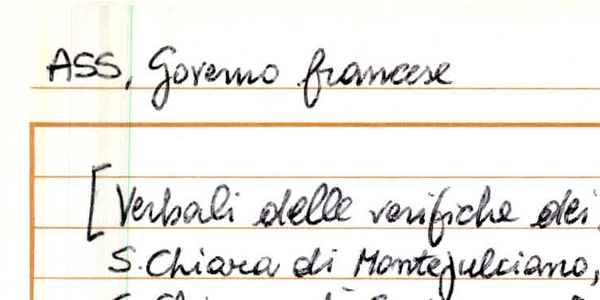 ASS, Governo francese
[Verbali delle verifiche dei
S. Chiara di Montepulciano,